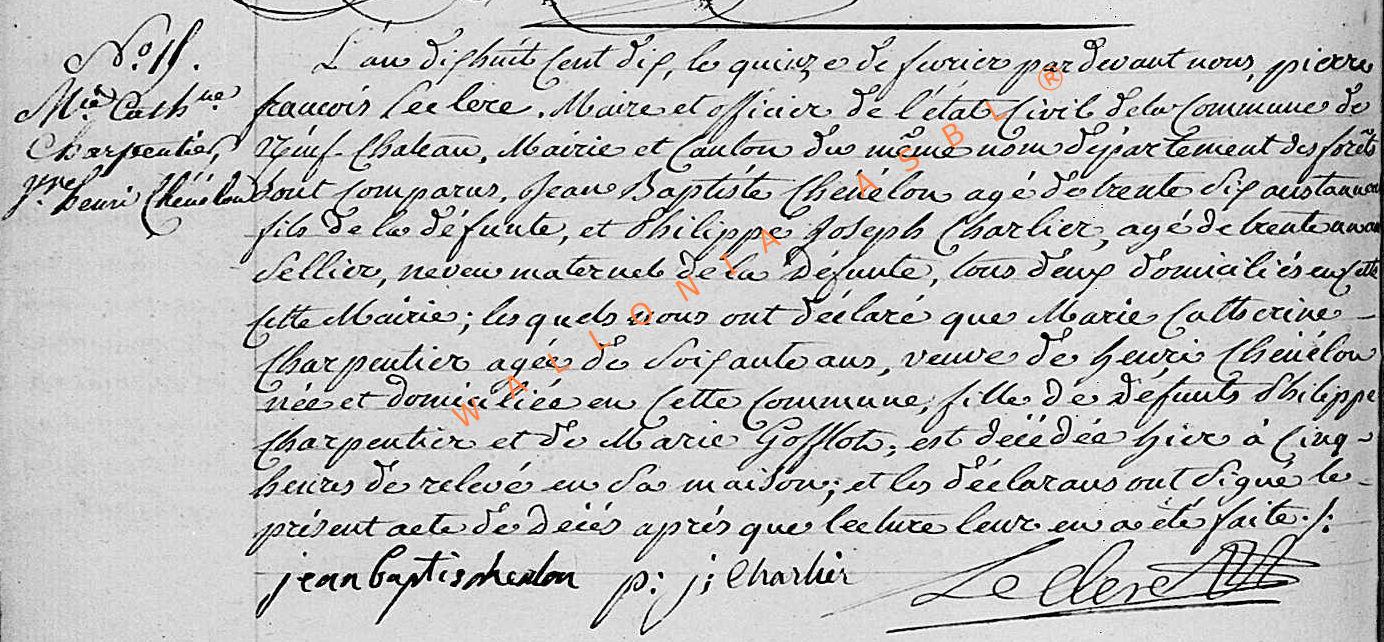 N.° 15.
M.ie Cath.ne
Charpentier,
v.ve henri Chénélon
L'an dix huit Cent dix, le quinze de fevrier par devant nous, pierre
francois Leclere, Maire et officier de l'état Civil de la Commune de
Neuf-Chateau, Mairie et Canton du même nom département des forêts
sont Comparus, Jean Baptiste Chénélon agé de trente six ans tanneur
fils de la défunte, et Philippe Joseph Charlier, agé de trente un an
Sellier, neveu maternel de la défunte, tous deux domiciliés en cette
Cette Mairie; lesquels nous ont déclaré que Marie Catherine
Charpentier agée de Soixante ans, veuve de henri Chénélon
née et domiciliée en Cette Commune, fille de défunts Philippe
Charpentier et de Marie Gofflot, est décédée hier à Cinq
heures de relevé en Sa maison; et les déclarans ont Signé le
présent acte de Décés aprés que lecture leur en a été faite ./.
jean baptis p: j: Charlier Leclere
WALLONIA ASBL ®